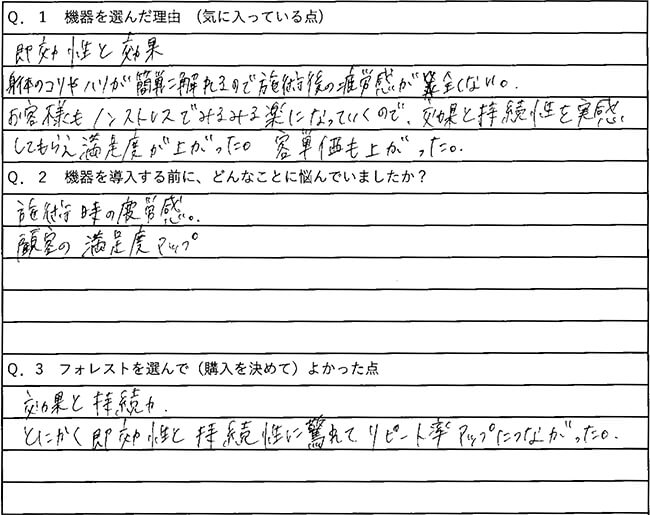 Q．1　機器を選んだ理由　（気に入っている点）
即効性と効果
身体のコリやハリが簡単に解れるので施術後の疲労感が全くない。
お客様もノンストレスでみるみる楽になっていくので、効果と持続性を実感
してもらえ満足度が上がった。客単価も上がった。
Q．2　機器を導入する前に、どんなことに悩んでいましたか？
施術時の疲労感。
顧客の満足度アップ
Q．3　フォレストを選んで（購入を決めて）よかった点
効果と持続力．
とにかく即効性と持続性に驚れて リピート率アップにつながった。